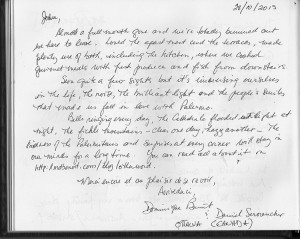 28/10/2013
John,
Almost a full month gone and we're totally bummed out
we have to leave. Loved the apartment and the terraces, made
plenty use of both, including the kitchen, where we cooked
gourmet meals with fresh produce and fish from downstairs.
Seen quite a few sights but it's immersing ourselves
in the life, the noise, the brilliant light and the people's smiles
that made us fall in love with Palermo.
Bells ringing every day, the Cathedrale flooded with light at
night, the fickle mountains - clear one day, hazy another - the
kindness of the Palermitans and surprises at every corner will stay in
our minds for a long time. You can read all about it on
http://
N'ana encore et au plaisir de se revoir,
Arrivederci,
Dominique
& Daniel
OTTAWA (CANADA)